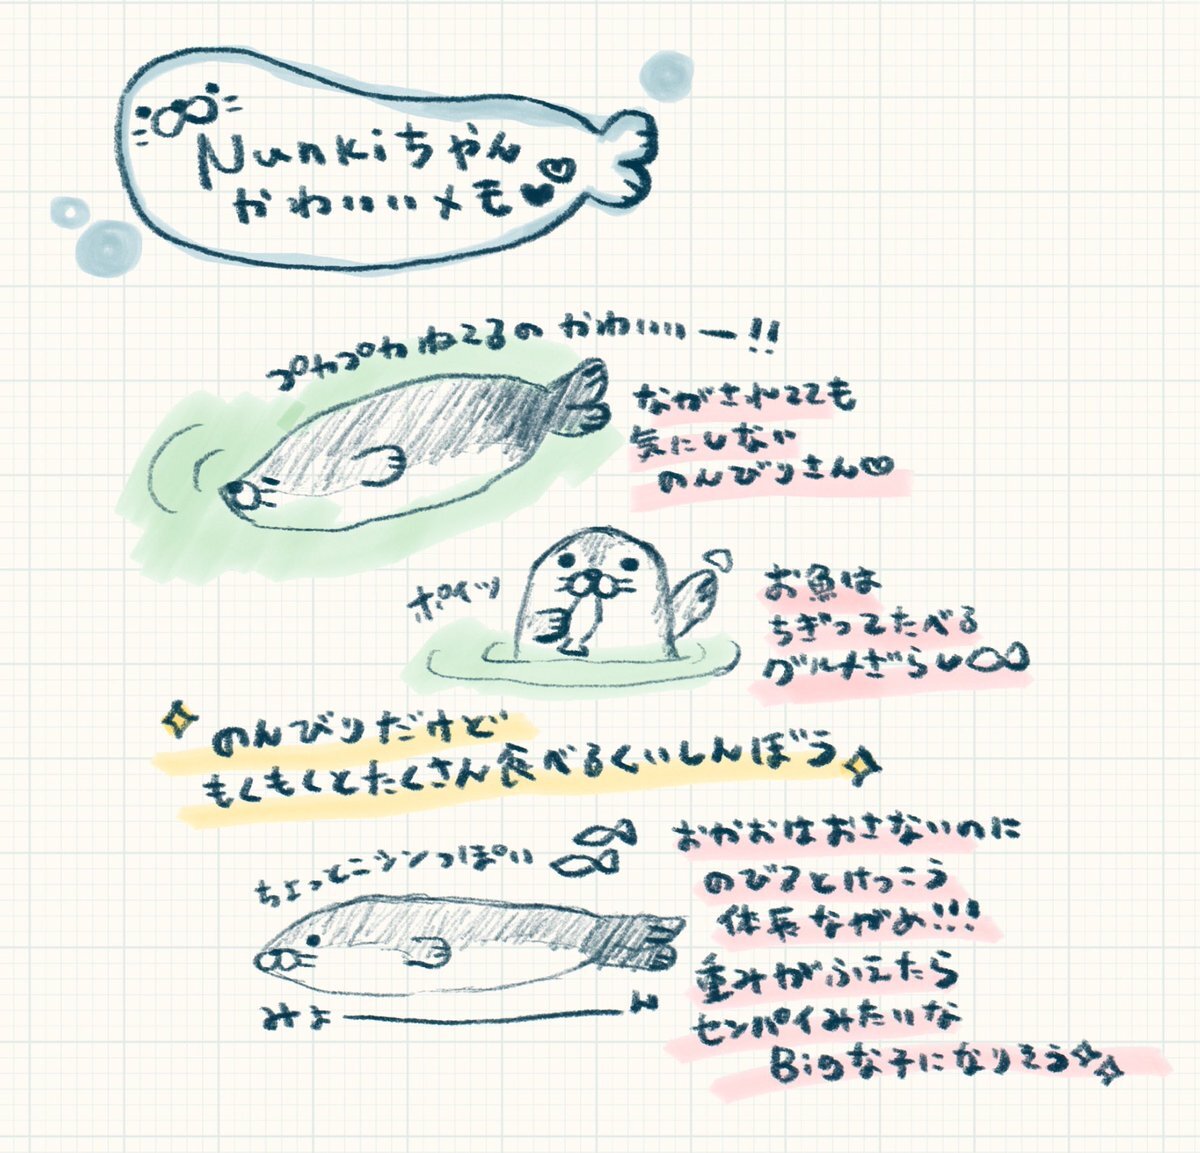 Nunkiちゃん
かわいいいメモ♥♡
プカプカねてるの かわいいいー!!
ながされてても
気にしない
のんびりさん♡
ポイッ
お魚は
ちぎってたべる
グルメざらし
のんびりだけど
もくもくとたくさん食べるくいしんぼう
ちょっとニシンっぽい
おかおはおさないのに
のびるとけっこう
体長ながめ!!!
みょーーん
重みがふえたら
センパイみたいな
Bigな子になりそう